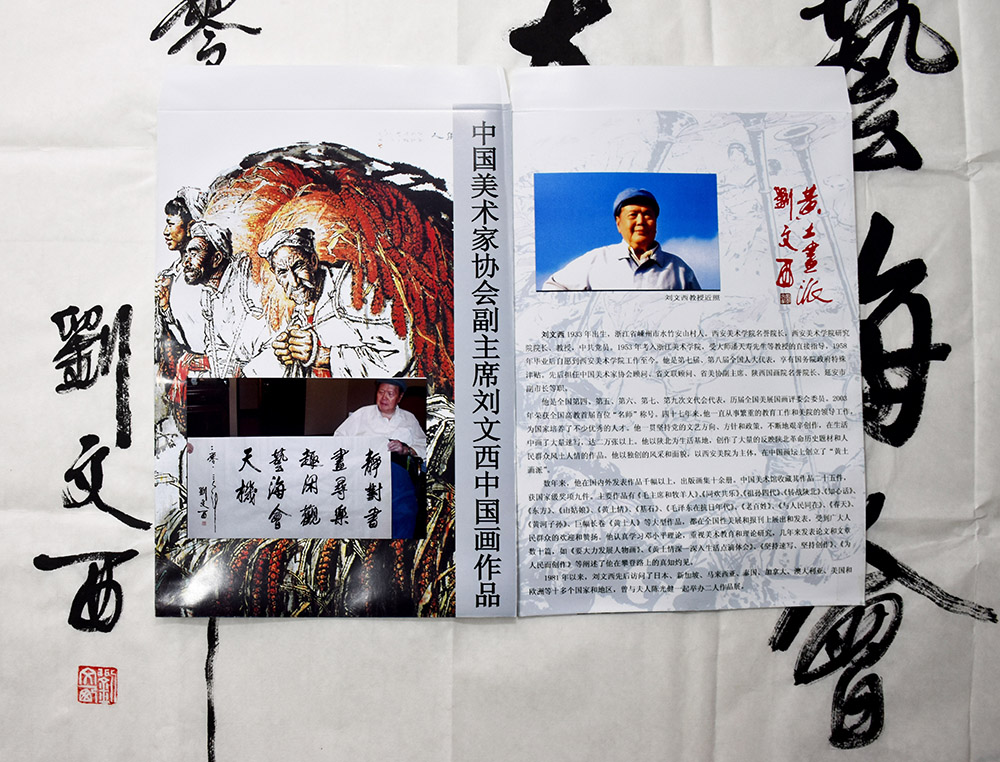 中国美术家协会副主席刘文西中国画作品
黄土画派
劉文西
刘文西教授近照
刘文西 1933 年出生，浙江省嵊州市水竹安山村人，西安美术学院名誉院长，西安美术学院研究
院院长、教授，中共党员。1953 年考入浙江美术学院，受大师潘天寿先生等的直接指导，1958
年毕业后自愿到西安美术学院工作至今。他是第七届、第八届全国人大代表，享有国务院政府特殊
津贴，先后担任中国美术家协会顾问、省文联顾问、省美协副主席、陕西国画院名誉院长、延安市
副市长等职。
他是全国第四、第五、第六、第七、第九次文代会代表，历届全国美展国画评委会委员，2003
年荣获全国高教首届百位“名师”称号。四十七年来，他一直从事繁重的教育工作和美院的领导工作，
为国家培养了不少优秀的人才。他一贯坚持党的文艺方向、方针和政策，不断地艰辛创作，在生活
中画了大量速写，达二万张以上。他以陕北为生活基地，创作了大量的反映陕北革命历史题材和人
民群众风土人情的作品。他以独创的风采和面貌，以西安美院为主体，在中国画坛上创立了“黄土
画派”。
数年来，他在国内外发表作品千幅以上，出版画集十余册，中国美术馆收藏其作品二十五件，
获国家级奖项九件。主要作品有《毛主席和牧羊人》、《同欢共乐》、《祖孙四代》、《转战陕北》、《知心话》、
《东方》、《山姑娘》、《黄土情》、《基石》、《毛泽东在抗日年代》、《老百姓》、《与人民同在》、《春天》、
《黄河子孙》、巨幅长卷《黄土人》等大型作品，都在全国性美展和报刊上展出和发表，受到广大人
民群众的欢迎和赞扬。他认真学习邓小平理论，重视美术教育和理论研究，几年来发表论文和文章
数十篇，如《要大力发展人物画》、《黄土情深—深入生活点滴体会》、《坚持速写、坚持创作》、《为
人民而创作》等阐述了他在攀登路上的真知灼见。
1981 年以来，刘文西先后访问了日本、新加坡、马来西亚、泰国、加拿大、澳大利亚、美国和
欧洲等十多个国家和地区，曾与夫人陈光健一起举办二人作品展。
靜對書
畫尋樂
趣闲觀
藝海會
天機
劉文西
藝海會
劉文西